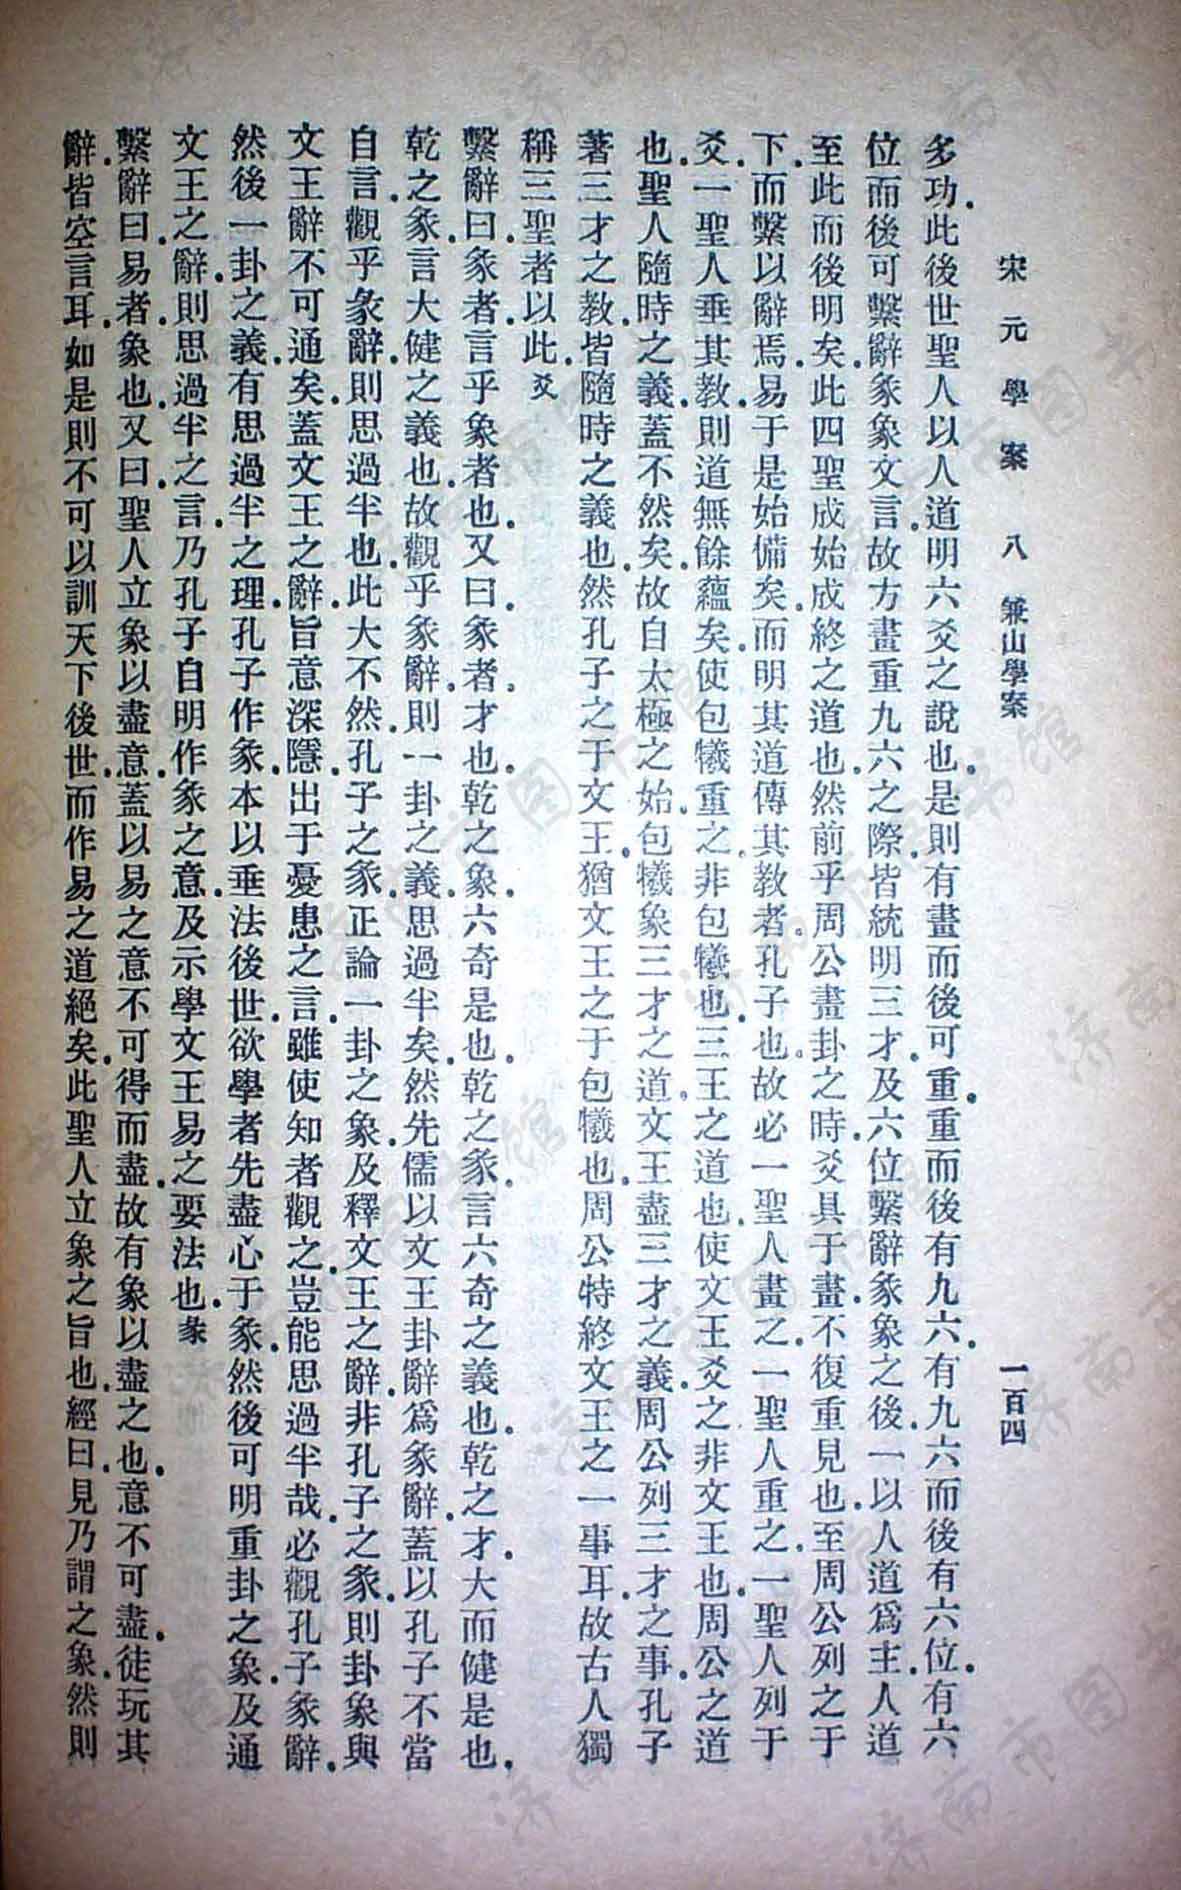 宋元學案 八 兼山學案 一百四
多功.此後世聖人以人道明六爻之說也.是則有畫而後可重.重而後有九六.有九六而後有六位.有六
位而後可繫辭彖象文言.故方畫重九六之際.皆統明三才.及六位繫辭彖象之後.一以人道爲主.人道
至此而後明矣.此四聖成始成終之道也.然前乎周公畫卦之時.爻具于畫.不復重見也.至周公列之于
下.而繫以辭焉.易于是始備矣.而明其道傳其教者.孔子也.故必一聖人畫之.一聖人重之.一聖人列于
爻.一聖人垂其教.則道無餘蘊矣.使包犧重之.非包犧也.三王之道也.使文王爻之.非文王也.周公之道
也.聖人隨時之義.蓋不然矣.故自太極之始.包犧象三才之道.文王盡三才之義.周公列三才之事.孔子
著三才之教.皆隨時之義也.然孔子之于文王.猶文王之于包犧也.周公特終文王之一事耳.故古人獨
稱三聖者以此.爻
繫辭曰.彖者言乎象者也.又曰.彖者.才也.乾之象.六奇是也.乾之彖.言六奇之義也.乾之才.大而健是也.
乾之彖.言大健之義也.故觀乎彖辭.則一卦之義.思過半矣.然先儒以文王卦辭爲彖辭.蓋以孔子不當
自言.觀乎彖辭.則思過半也.此大不然.孔子之彖.正論一卦之象.及釋文王之辭.非孔子之彖.則卦象與
文王辭不可通矣.蓋文王之辭.旨意深隱.出于憂患之言.雖使知者觀之.豈能思過半哉.必觀孔子彖辭.
然後一卦之義.有思過半之理.孔子作彖.本以垂法後世.欲學者先盡心于彖.然後可明重卦之象.及通
文王之辭.則思過半之言.乃孔子自明作彖之意.及示學文王易之要法也.彖
繫辭曰.易者.象也.又曰.聖人立象以盡意.蓋以易之意不可得而盡.故有象以盡之也.意不可盡.徒玩其
辭.皆空言耳.如是則不可以訓天下後世.而作易之道絕矣.此聖人立象之旨也.經曰.見乃謂之象.然則